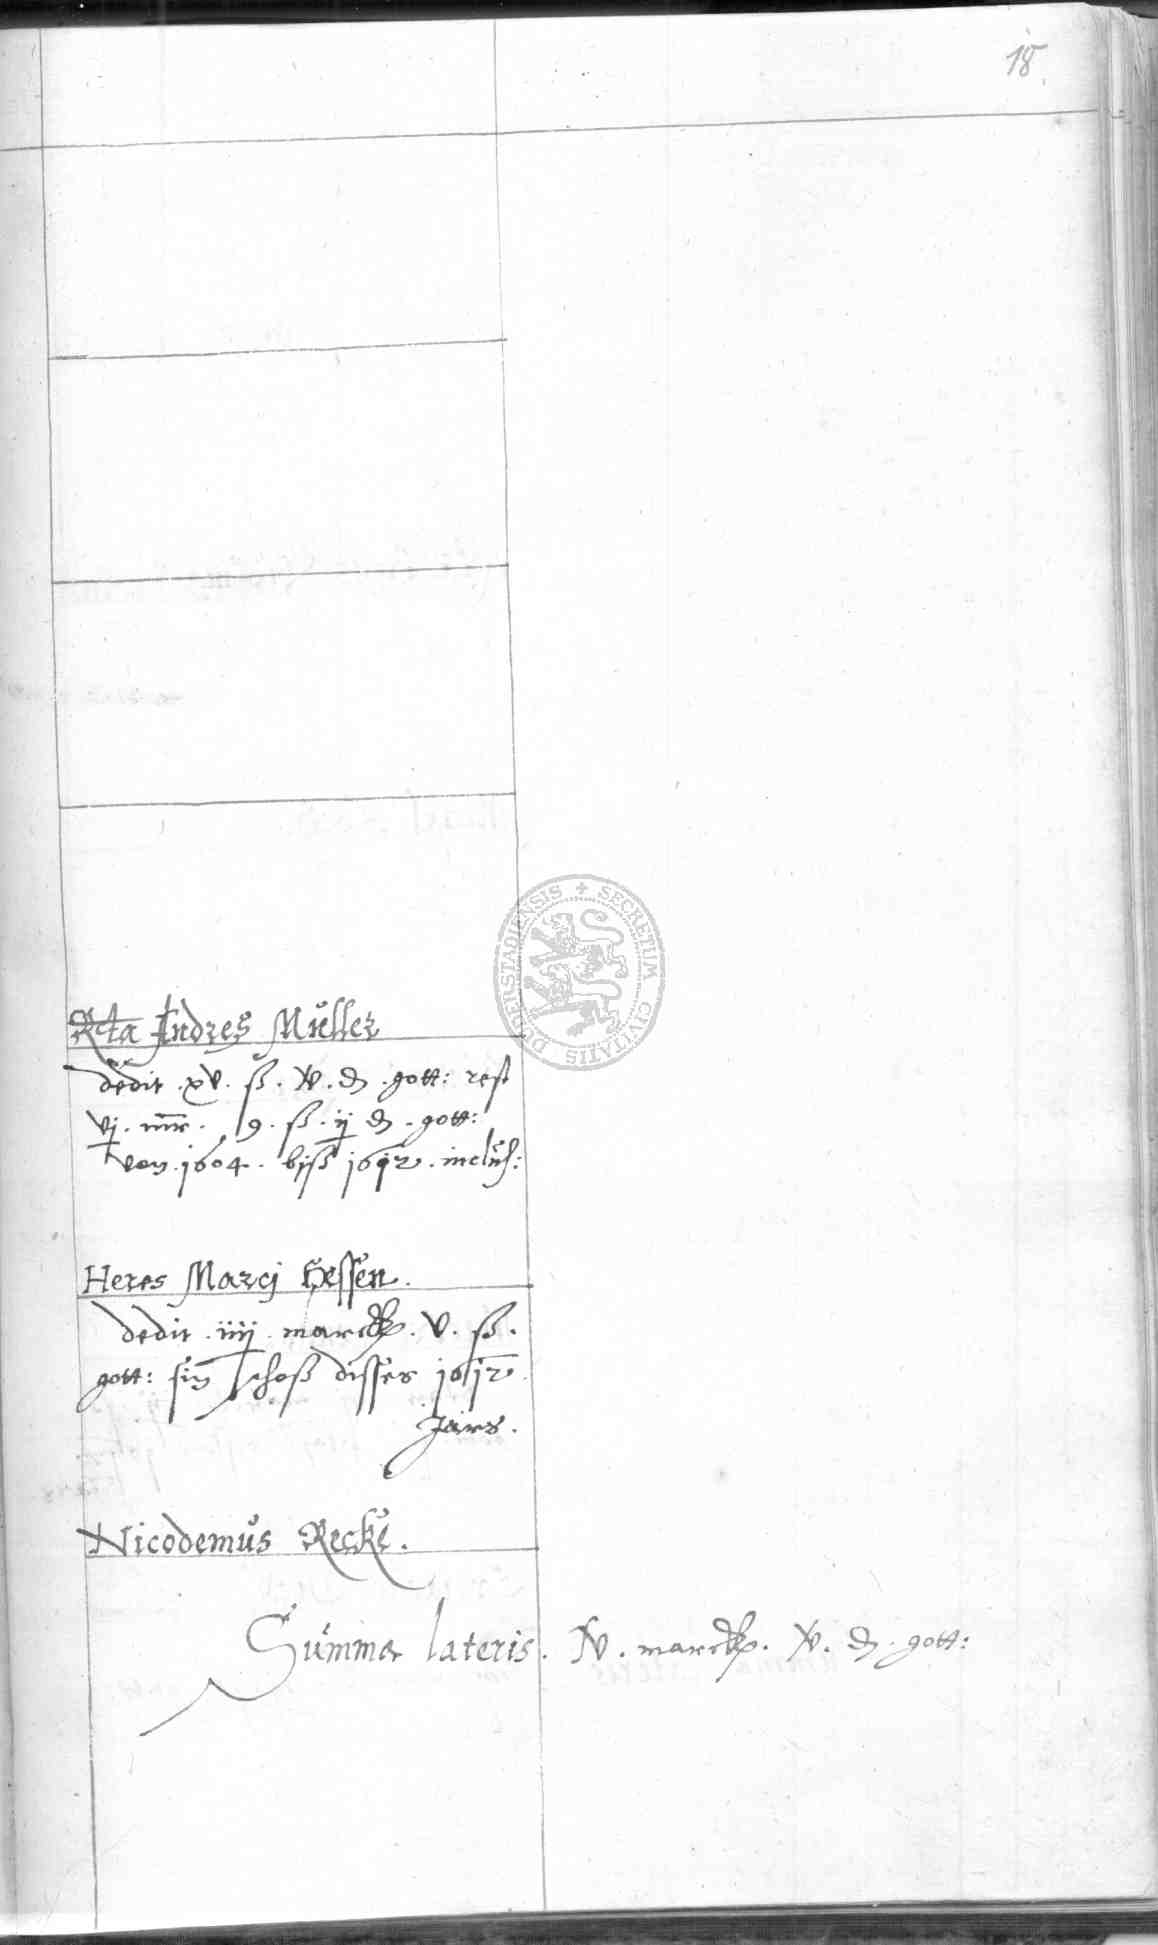 18
Rcta Andres Müller
dedit . xv . ß . iv . ₰ . gott: rest
vj . mr . 9 . ß . ij ₰ . gott:
von . 1604 . biß 1612 . inclus:
Heres Marcj Hessen .
dedit . iiij . marck . v . ß .
gott: sin schoß disses 1612
Jairs .
Nicodemus Recke .
Summa lateris . iv . marck . iv . ₰ . gott:
SECRETUM CIVITATIS DUDERSTADIENSIS